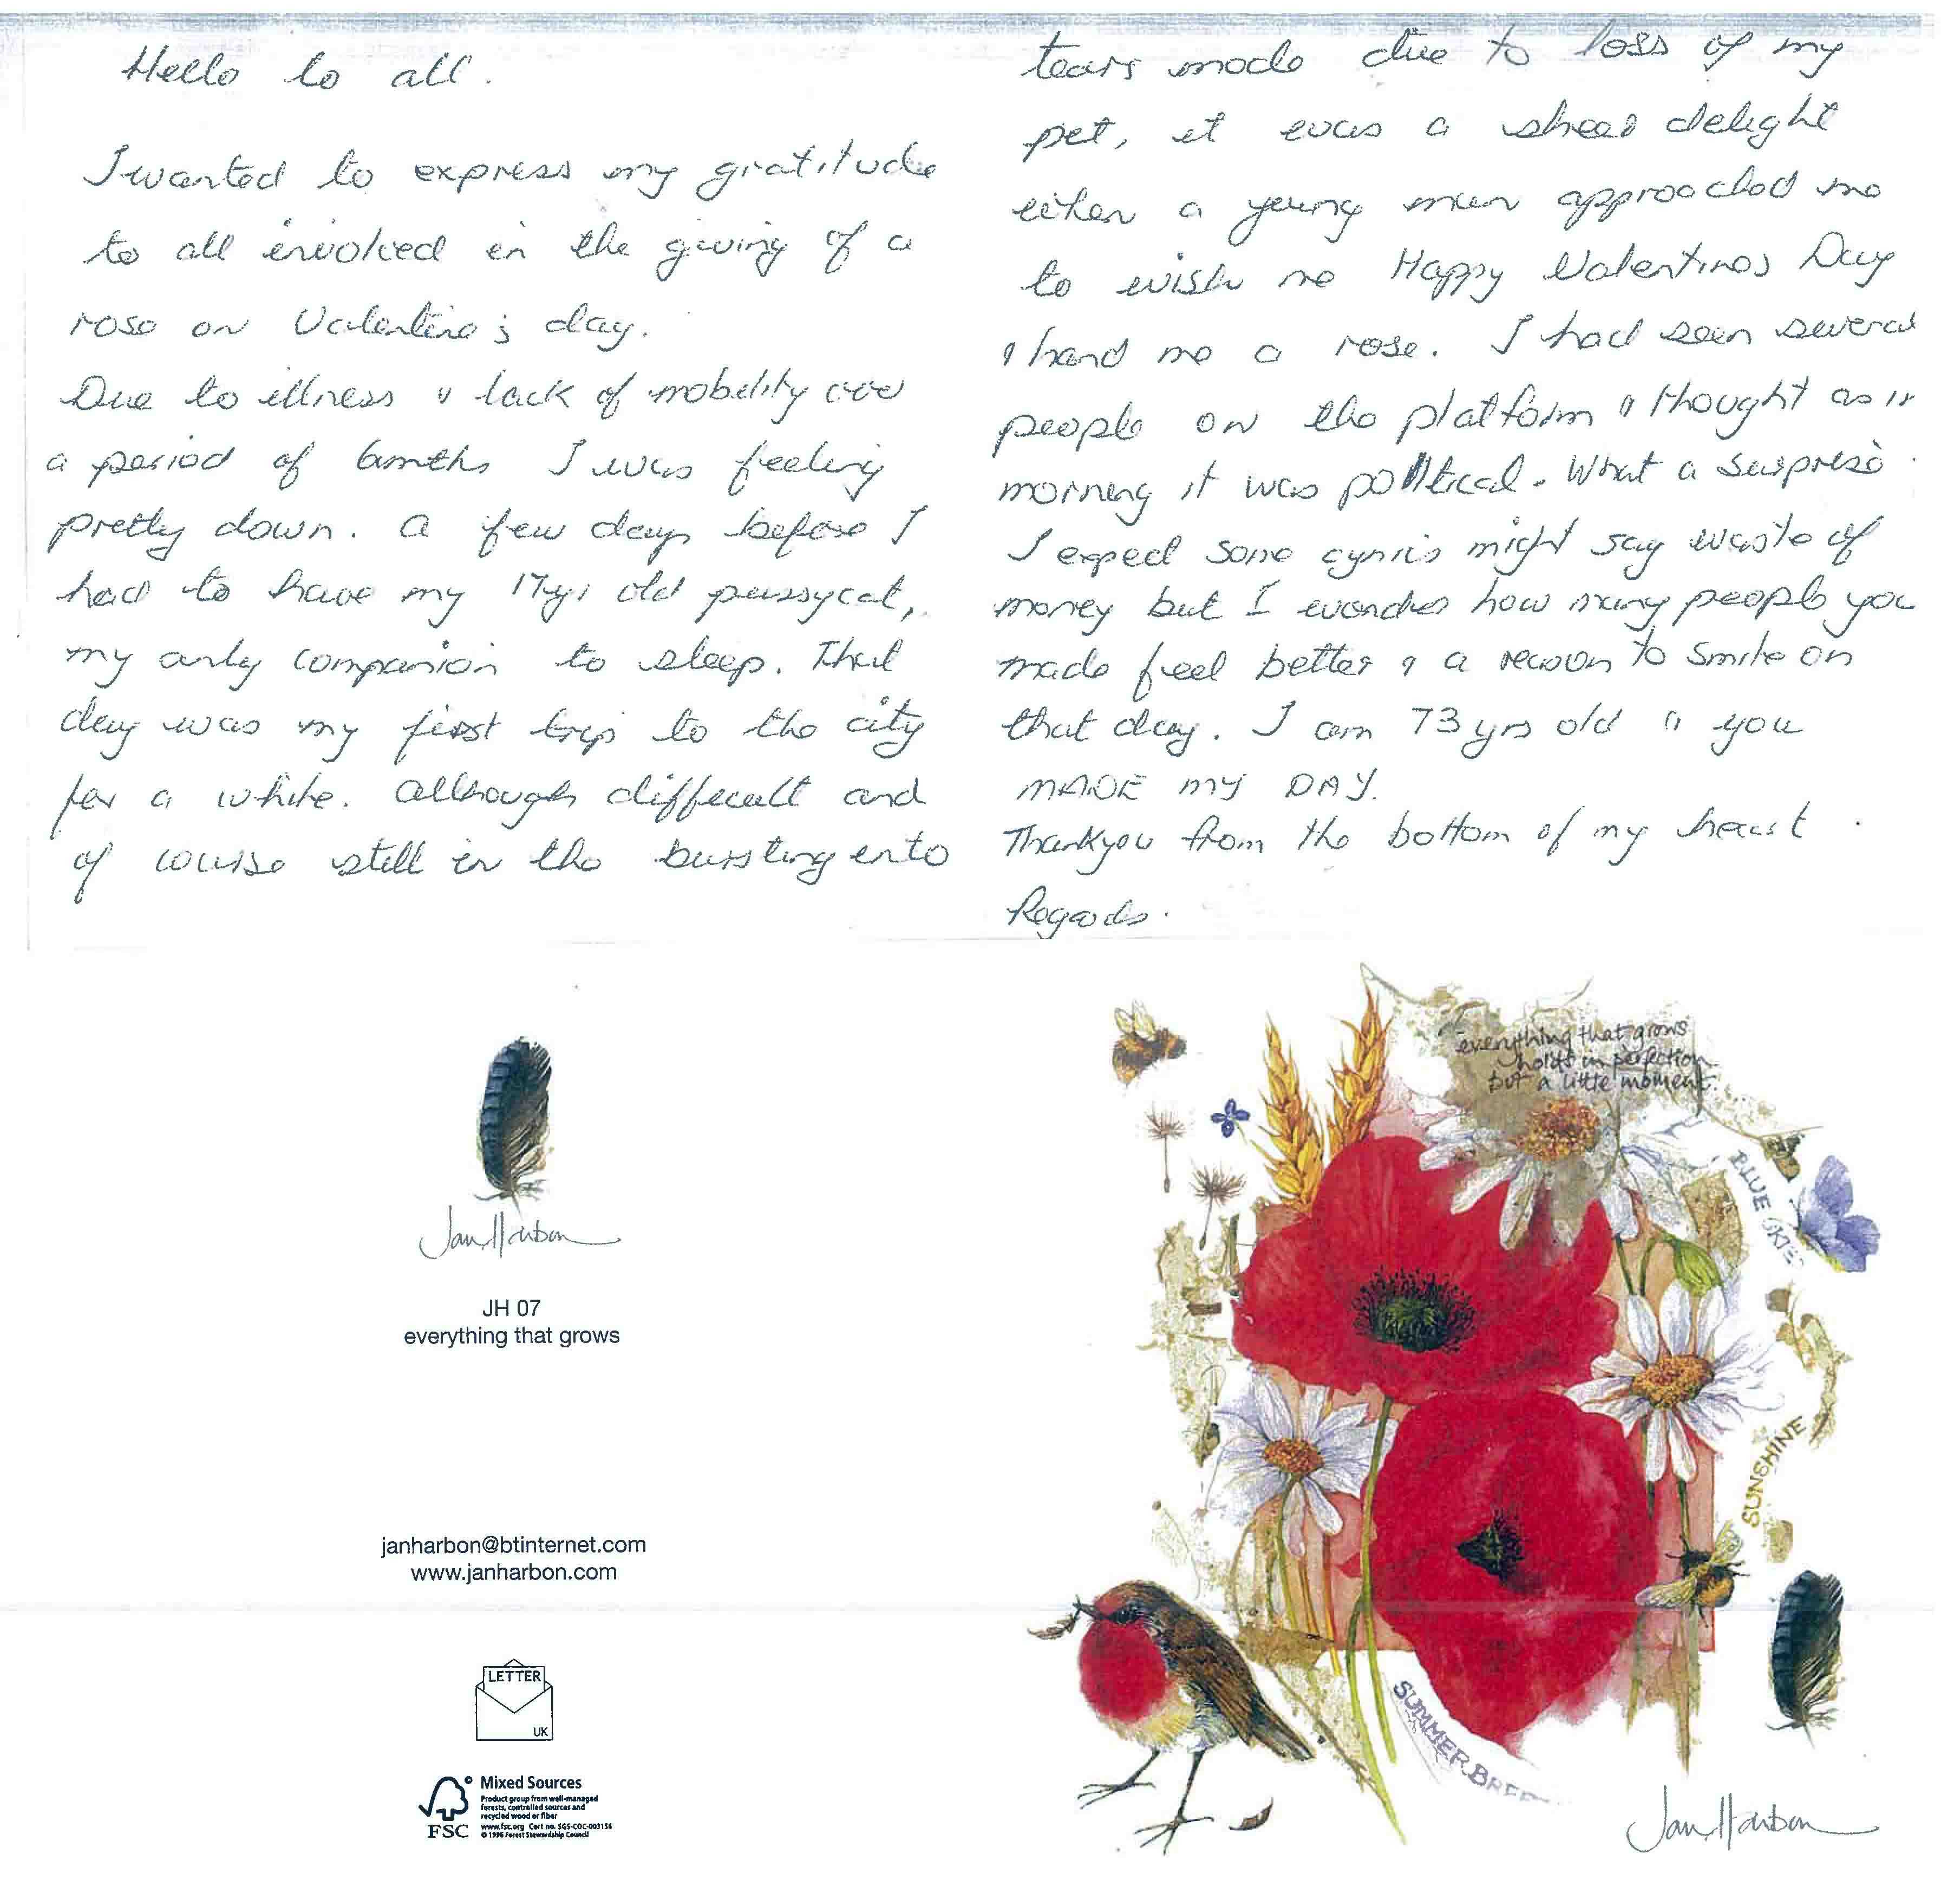 Hello to all.
I wanted to express my gratitude
to all involved in the giving of a
rose on Valentine's day.
Due to illness & lack of mobility over
a period of 6mths I was feeling
pretty down. A few days before I
had to have my 17yr old pussycat,
my only companion to sleep. That
day was my first trip to the city
for a while. Although difficult and
of course still in the bursting into
tears mode due to loss of my
pet, it was a sheer delight
when a young man approached me
to wish me Happy Valentines Day
& hand me a rose. I had seen several
people on the platform & thought as in
morning it was political. What a surprise.
I expect some cynics might say waste of
money but I wonder how many people you
made feel better & a reason to smile on
that day. I am 73 yrs old & you
MADE MY DAY.
Thankyou from the bottom of my heart.
Regards.
Jan Harbon
JH 07
everything that grows
janharbon@btinternet.com
www.janharbon.com
LETTER
UK
FSC
Mixed Sources
Product group from well-managed
forests, controlled sources and
recycled wood or fiber
www.fsc.org Cert no. SGS-COC-003156
© 1996 Forest Stewardship Council
everything that grows
holds in perfection
but a little moment.
BLUE SKIES
SUNSHINE
SUMMER BREE
Jan Harbon